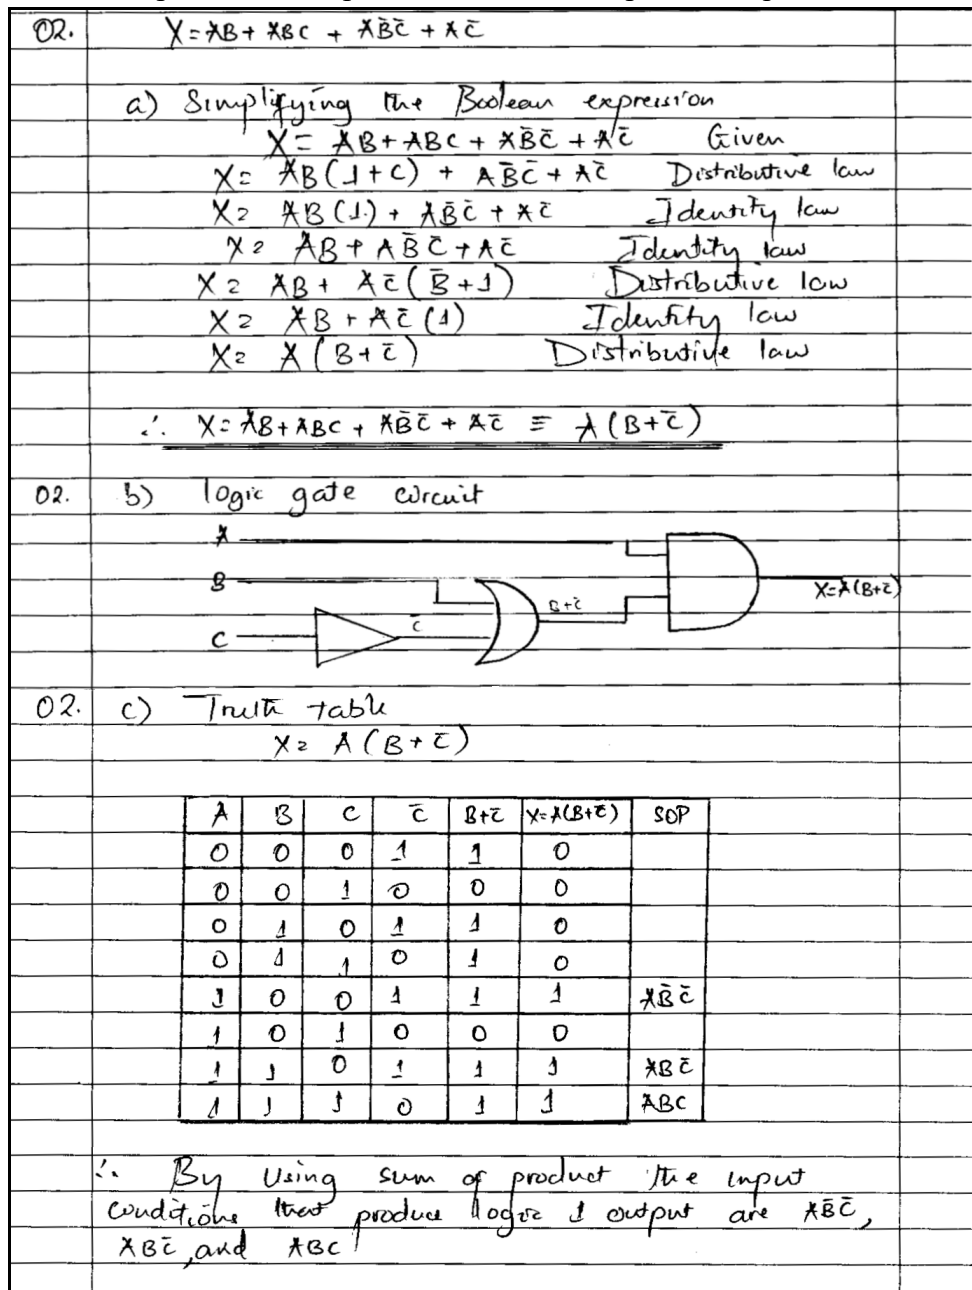 02. X=AB+ABC + AB̄C̄ + AC̄
a) Simplifying the Boolean expression
X= AB+ABC+AB̄C̄+AC̄ Given
X= AB(1+C) + AB̄C̄+AC̄ Distributive law
X= AB(1)+AB̄C̄+AC̄ Identity law
X= AB+AB̄C̄+AC̄ Identity law
X= AB+ AC̄(B̄+1) Distributive law
X= AB+AC̄(1) Identity law
X= A(B+C̄) Distributive law
∴ X=AB+ABC+AB̄C̄+AC̄ ≡ A(B+C̄)
02. b) logic gate circuit
A
B
B+C̄
X=A(B+C̄)
C
C̄
02. c) Truth table
X= A(B+C̄)
A B C C̄ B+C̄ X=A(B+C̄) SOP
0 0 0 1 1 0
0 0 1 0 0 0
0 1 0 1 1 0
0 1 1 0 1 0
1 0 0 1 1 1 AB̄C̄
1 0 1 0 0 0
1 1 0 1 1 1 ABC̄
1 1 1 0 1 1 ABC
∴ By Using sum of product the input
conditions that produce logic 1 output are AB̄C̄,
ABC̄, and ABC